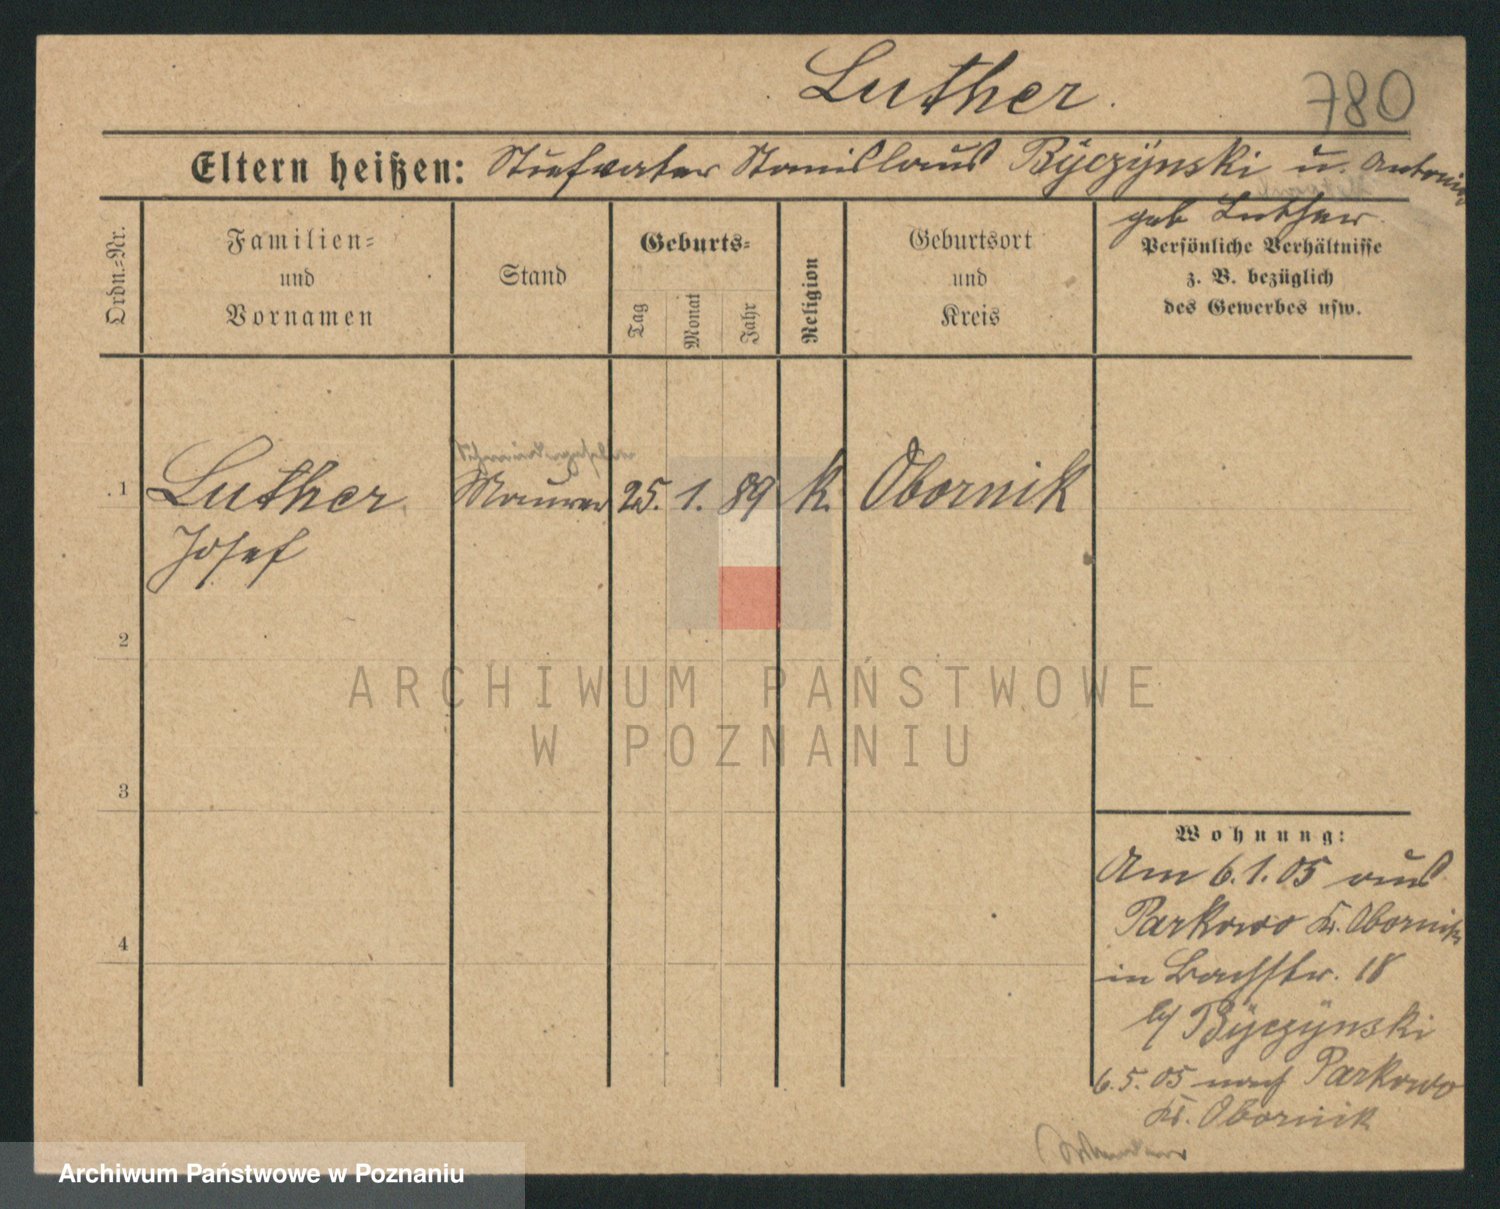 Luther.
780
Eltern heißen: Stiefvater Stanislaus Byczynski u. Antonie
geb Luther.
Ordn.=Nr.
Familien=
und
Vornamen
Stand
Geburts=
Tag
Monat
Jahr
Religion
Geburtsort
und
Kreis
Persönliche Verhältnisse
z. B. bezüglich
des Gewerbes usw.
1
Luther Maurer 25. 1. 89 k. Obornik
Josef
2
ARCHIWUM PAŃSTWOWE
W POZNANIU
3
Wohnung:
Am 6.1.05 aus
Parkowo Kr. Obornik
in Bachstr. 18
b/ Byczynski
4
6.5.05 nach Parkowo
Kr. Obornik
Archiwum Państwowe w Poznaniu